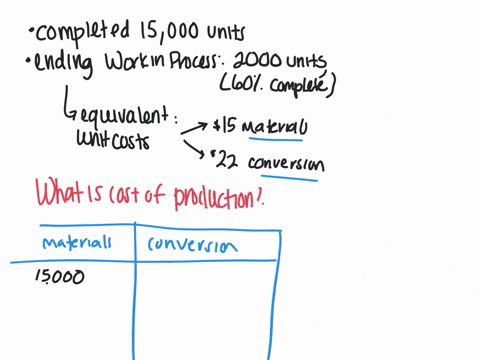 • completed 15,000 units
• ending Work in Process: 2000 units
(60% complete)
equivalent :
unit costs
$15 materials
$22 conversion
What is cost of production?
materials conversion
15,000